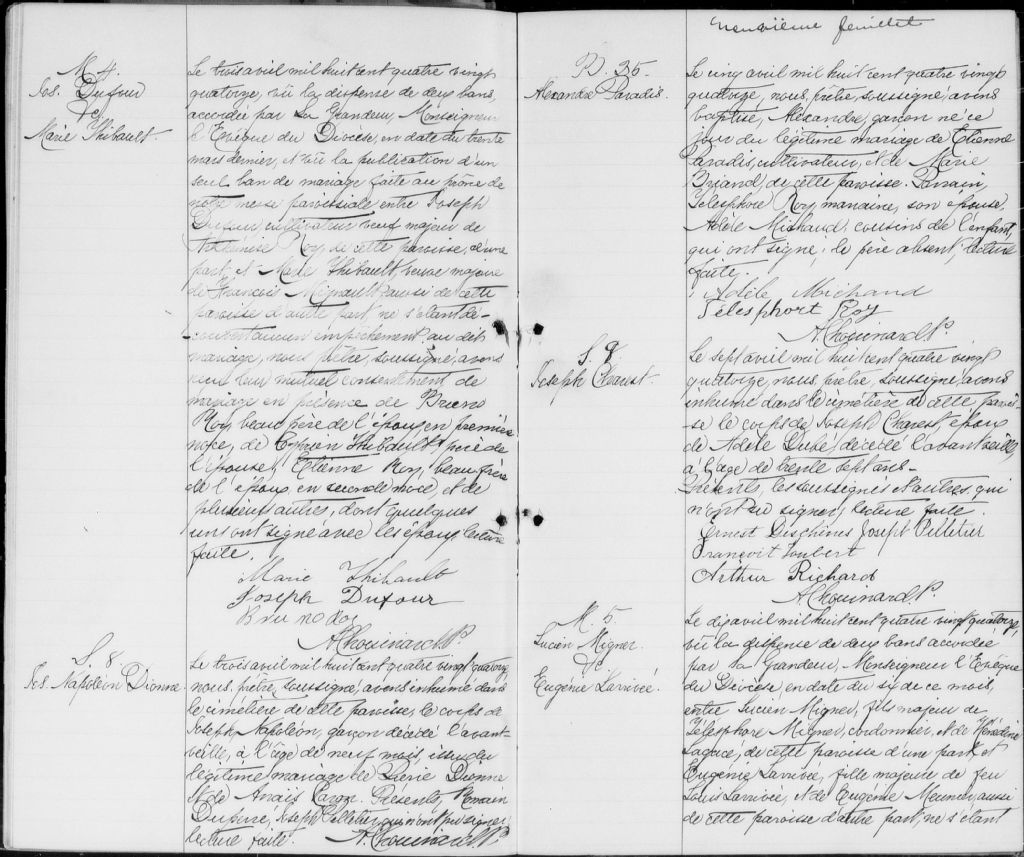 M. 4.
Jos. Dufour
&
Marie Thibault
Le trois avril mil huit cent quatre vingt
quatorze, vû la dispense de deux bans,
accordée par Sa Grandeur, Monseigneur
l'Evêque du Diocèse, en date du trente
mars dernier, et vû la publication d'un
seul ban de mariage faite au prône de
notre messe paroissiale entre Joseph
Dufour cultivateur veuf majeur de
Roy, de cette paroisse, d'une
part, et Marie Thibault, veuve majeure
de François Mignault, aussi de cette
paroisse d'autre part, ne s'étant dé-
-couvert aucun empêchement au dit
mariage, nous, prêtre, soussigné, avons
reçu leur mutuel consentement de
mariage en présence de Bruno
Roy, beau père de l'époux en première
noce, de Cyprien Thibault, père de
l'épouse, Etienne Roy, beau frère
de l'époux en seconde noce, et de
plusieurs autres, dont quelques
uns ont signé avec les époux, lecture
faite.
Marie Thibault
Joseph Dufour
Bruno Roy
A. Chouinard P.
S. 8.
Jos. Napoléon Dionne
Le trois avril mil huit cent quatre vingt quatorze,
nous, prêtre, soussigné, avons inhumé dans
le cimetière de cette paroisse, le corps de
Joseph Napoléon, garçon décédé l'avant-
veille, à l'âge de neuf mois, issu du
légitime mariage de Pierre Dionne
et de Anaïs Caron. Présents, Romain
Dupéré, Joseph Pelletier qui n'ont pu signer,
lecture faite. A. Chouinard P.
neuvième feuillet
B. 35.
Alexandre Paradis.
Le cinq avril mil huit cent quatre vingt
quatorze, nous, prêtre, soussigné, avons
baptisé, Alexandre, garçon né ce
jour du légitime mariage de Etienne
Paradis, cultivateur, et de Marie
Briand, de cette paroisse. Parrain,
Télesphore Roy, marraine, son épouse,
Adèle Michaud, cousins de l'enfant,
qui ont signé, le père absent, lecture
faite.
Adèle Michaud
Télesphort Roy
A. Chouinard P.
S. 9.
Joseph Charest
Le sept avril mil huit cent quatre vingt
quatorze, nous, prêtre, soussigné, avons
inhumé dans le cimetière de cette parois-
-se le corps de Joseph Charest, époux
de Adèle Dubé, décédé l'avant veille,
à l'âge de trente sept ans.
Présents, les soussignés et autres qui
n'ont pu signer, lecture faite.
Ernest Deschênes Joseph Pelletier
François Joubert
Arthur Richard
A. Chouinard P.
M. 5.
Lucien Migner.
&
Eugénie Larrivée.
Le dix avril mil huit cent quatre vingt quatorze,
vû la dispense de deux bans accordée
par Sa Grandeur, Monseigneur l'Evêque
du Diocèse, en date du six de ce mois,
entre Lucien Migner, fils majeur de
Télésphore Migner, cordonnier, et de
Lagacé, de cette paroisse d'une part, et
Eugénie Larrivée, fille majeure de feu
Louis Larrivée, et de Eugénie Meunier, aussi
de cette paroisse d'autre part, ne s'étant